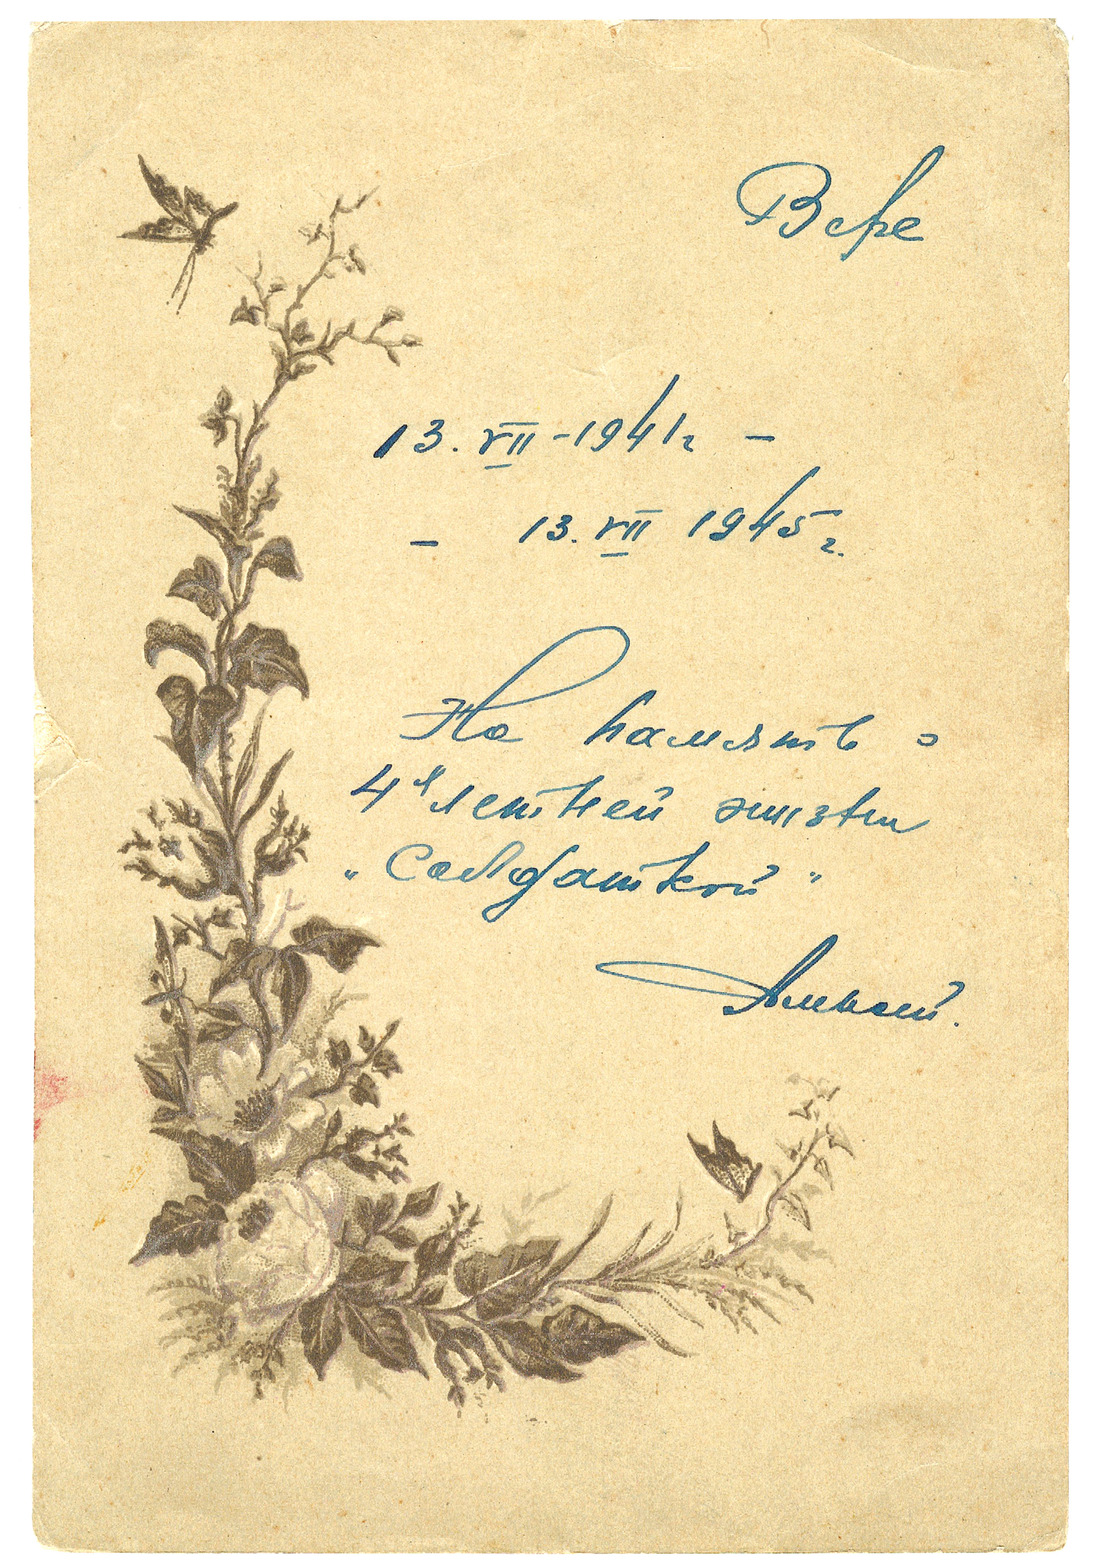 Вере
13. VII - 1941 г –
– 13. VII 1945 г.
На память о
4х летней жизни
„Солдаткой"
Алексей.